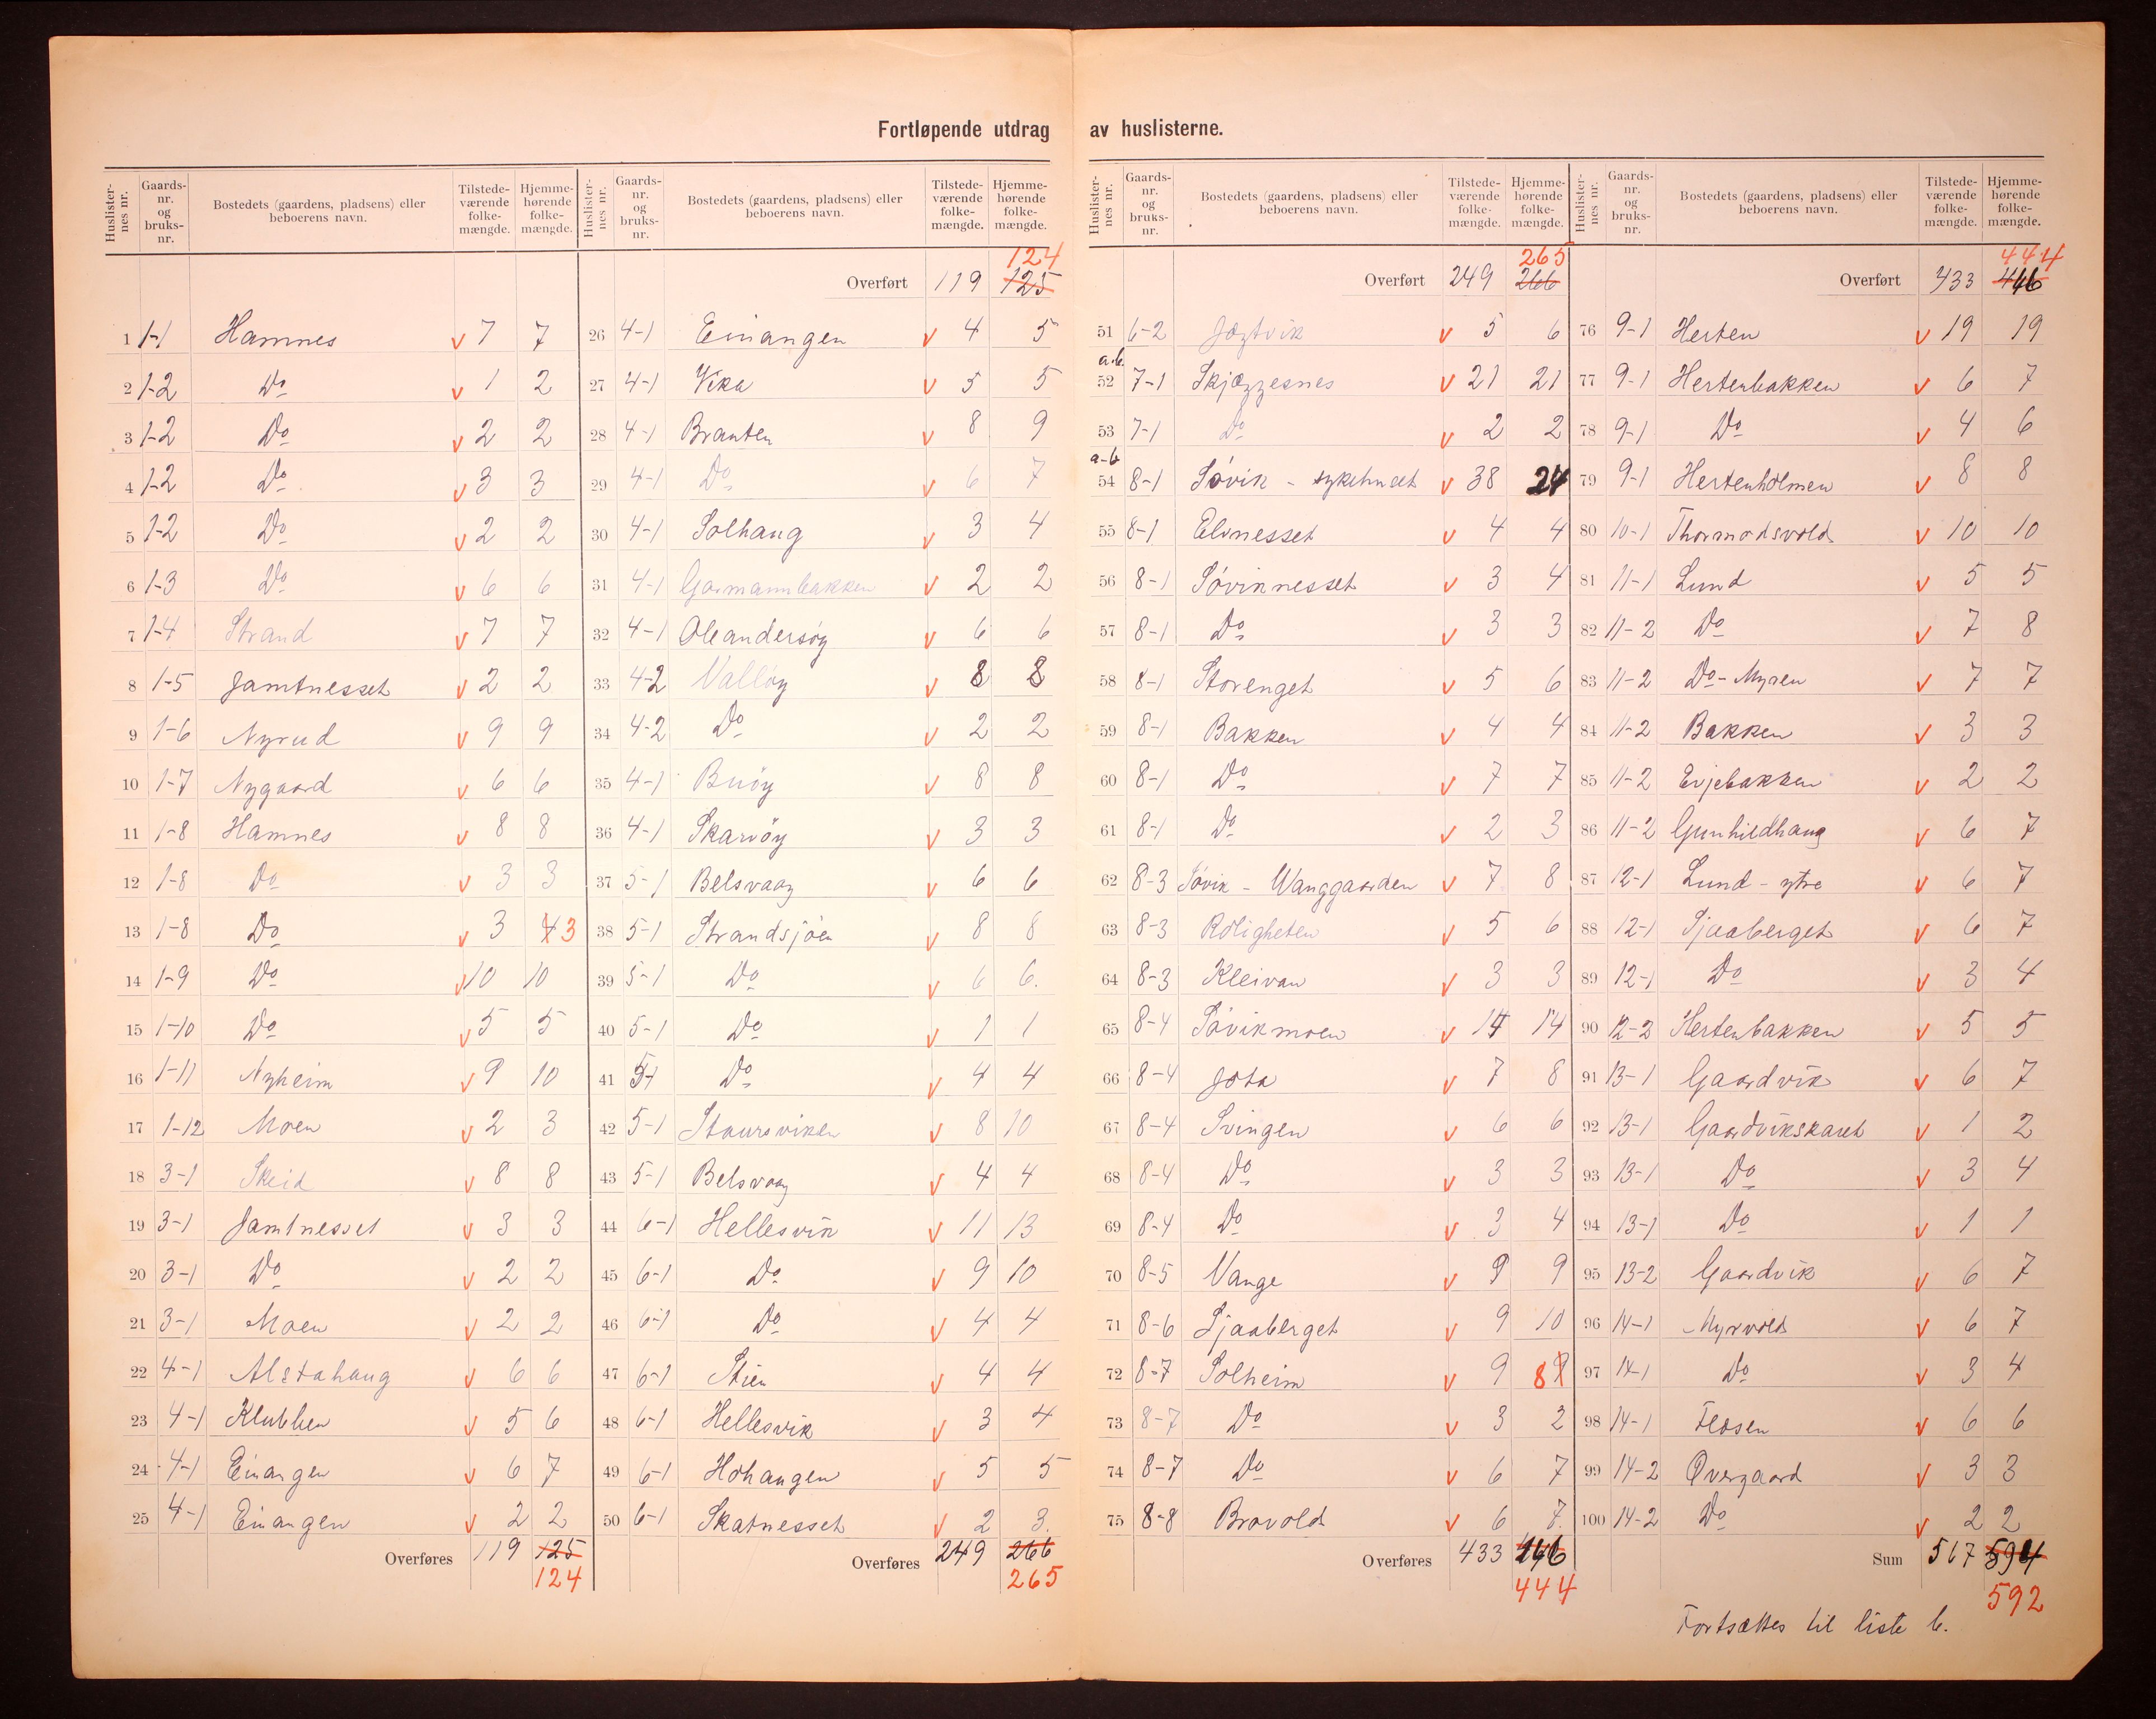 Fortløpende utdrag av huslisterne.
Huslister-nes nr. Gaards-nr. og bruks-nr. Bostedets (gaardens, pladsens) eller beboerens navn. Tilstede-værende folke-mængde. Hjemme-hørende folke-mængde.
1 1-1 Hamnes v 7 7
2 1-2 Do v 1 2
3 1-2 Do v 2 2
4 1-2 Do v 3 3
5 1-2 Do v 2 2
6 1-3 Do v 6 6
7 1-4 Strand v 7 7
8 1-5 Jamtnesset v 2 2
9 1-6 Nyrud v 9 9
10 1-7 Nygaard v 6 6
11 1-8 Hamnes v 8 8
12 1-8 Do v 3 3
13 1-8 Do v 3 4 3
14 1-9 Do v 10 10
15 1-10 Do v 5 5
16 1-11 Nyheim v 9 10
17 1-12 Moen v 2 3
18 3-1 Skeid v 8 8
19 3-1 Jamtnesset v 3 3
20 3-1 Do v 2 2
21 3-1 Moen v 2 2
22 4-1 Alstahaug v 6 6
23 4-1 Klubben v 5 6
24 4-1 Einangen v 6 7
25 4-1 Einangen v 2 2
Overføres 119 125
124
Huslister-nes nr. Gaards-nr. og bruks-nr. Bostedets (gaardens, pladsens) eller beboerens navn. Tilstede-værende folke-mængde. Hjemme-hørende folke-mængde.
124
Overført 119 125
26 4-1 Einangen v 4 5
27 4-1 Vika v 5 5
28 4-1 Branten v 8 9
29 4-1 Do v 6 7
30 4-1 Solhaug v 3 4
31 4-1 Garmannbakken v 2 2
32 4-1 Oleandersøy v 6 6
33 4-2 Valløy v 8 8
34 4-2 Do v 2 2
35 4-1 Buøy v 8 8
36 4-1 Skarvøy v 3 3
37 5-1 Belsvaag v 6 6
38 5-1 Strandsjøen v 8 8
39 5-1 Do v 6 6.
40 5-1 Do v 1 1
41 5-1 Do v 4 4
42 5-1 Staursviken v 8 10
43 5-1 Belsvaag v 4 4
44 6-1 Hellesvik v 11 13
45 6-1 Do v 9 10
46 6-1 Do v 4 4
47 6-1 Stien v 4 4
48 6-1 Hellesvik v 3 4
49 6-1 Hohaugen v 5 5
50 6-1 Skatnesset v 2 3.
Overføres 249 266
265
Huslister-nes nr. Gaards-nr. og bruks-nr. Bostedets (gaardens, pladsens) eller beboerens navn. Tilstede-værende folke-mængde. Hjemme-hørende folke-mængde.
265
Overført 249 266
51 6-2 v 5 6
a.b.
52 7-1 Skjæggesnes v 21 21
53 7-1 Do v 2 2
a-b
54 8-1 Søvik - sykehuset v 38 24
55 8-1 Elvnesset v 4 4
56 8-1 Søviknesset v 3 4
57 8-1 Do v 3 3
58 8-1 Storenget v 5 6
59 8-1 Bakken v 4 4
60 8-1 Do v 7 7
61 8-1 Do v 2 3
62 8-3 Søvik - Wanggaarden v 7 8
63 8-3 Roligheten v 5 6
64 8-3 Kleivan v 3 3
65 8-4 Søvikmoen v 14 14
66 8-4 v 7 8
67 8-4 Svingen v 6 6
68 8-4 Do v 3 3
69 8-4 Do v 3 4
70 8-5 Vange v 9 9
71 8-6 Sjaaberget v 9 10
72 8-7 Solheim v 9 8 9
73 8-7 Do v 3 2
74 8-7 Do v 6 7
75 8-8 Brovold v 6 7.
Overføres 433 446
444
Huslister-nes nr. Gaards-nr. og bruks-nr. Bostedets (gaardens, pladsens) eller beboerens navn. Tilstede-værende folke-mængde. Hjemme-hørende folke-mængde.
444
Overført 433 446
76 9-1 Herten v 19 19
77 9-1 Hertenbakken v 6 7
78 9-1 Do v 4 6
79 9-1 Hertenholmen v 8 8
80 10-1 Thormodsvold v 10 10
81 11-1 Lund v 5 5
82 11-2 Do v 7 8
83 11-2 Do - Myren v 7 7
84 11-2 Bakken v 3 3
85 11-2 Evjebakken v 2 2
86 11-2 Gunhildhaug v 6 7
87 12-1 Lund - ytre v 6 7
88 12-1 Sjaaberget v 6 7
89 12-1 Do v 3 4
90 12-2 Hertenbakken v 5 5
91 13-1 Gaardvik v 6 7
92 13-1 Gaardvikskaret v 1 2
93 13-1 Do v 3 4
94 13-1 Do v 1 1
95 13-2 Gaardvik v 6 7
96 14-1 Myrvold v 6 7
97 14-1 Do v 3 4
98 14-1 Flosen v 6 6
99 14-2 Øvergaard v 3 3
100 14-2 Do v 2 2
Sum 567 594
592
Fortsættes til liste b.